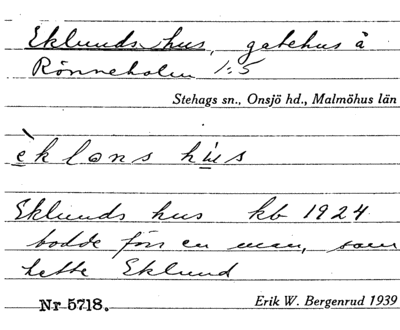 Eklunds hus, gatehus å
Rönneholm 1:5
Stehags sn., Onsjö hd., Malmöhus län
èklɷns hus
Eklunds hus kb 1924
bodde förr en man, som
hette Eklund
Nr 5718. Erik W. Bergenrud 1939